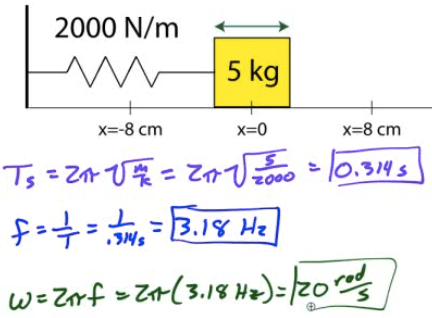 2000 N/m
5 kg
x=-8 cm x=0 x=8 cm
Ts = 2π√(m/k) = 2π√(5/2000) = 0.314 s
f = 1/T = 1/.314s = 3.18 Hz
ω = 2πf = 2π(3.18 Hz) = 20 rad/s